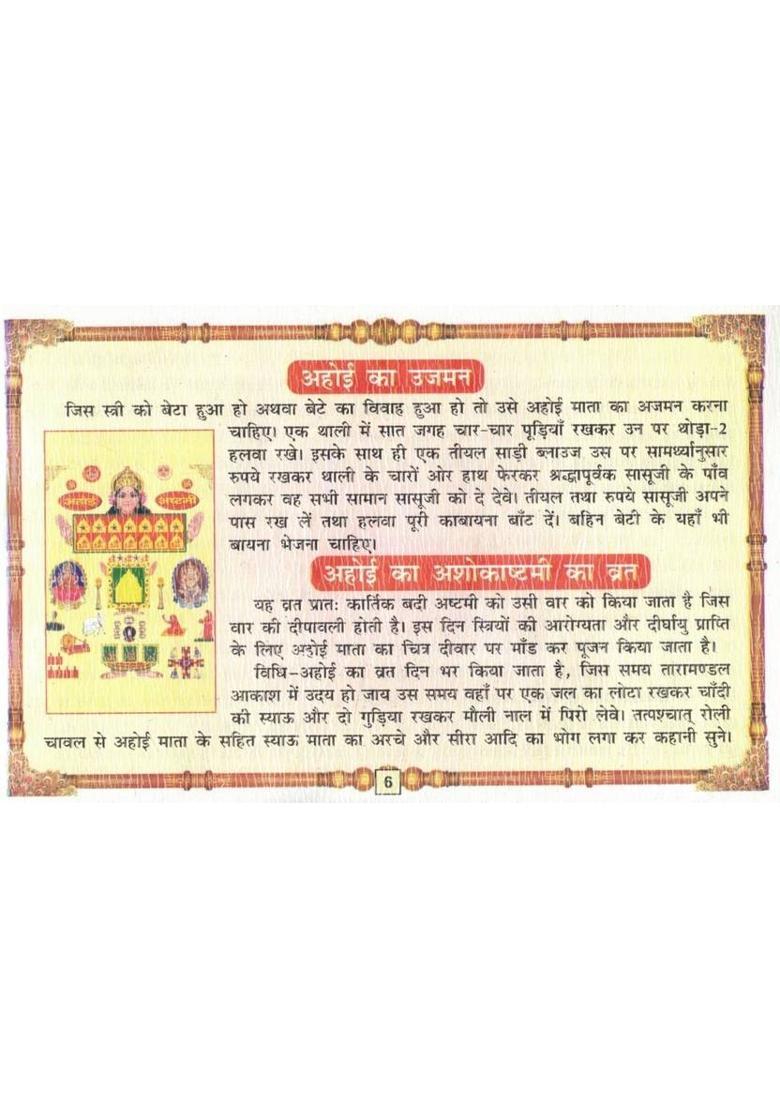 अहोई का उजमन
जिस स्त्री को बेटा हुआ हो अथवा बेटे का विवाह हुआ हो तो उसे अहोई माता का अजमन करना
चाहिए। एक थाली में सात जगह चार-चार पूड़ियाँ रखकर उन पर थोड़ा-2
हलवा रखे। इसके साथ ही एक तीयल साड़ी ब्लाउज उस पर सामर्थ्यानुसार
रुपये रखकर थाली के चारों ओर हाथ फेरकर श्रद्धापूर्वक सासूजी के पाँव
लगकर वह सभी सामान सासूजी को दे देवे। तीयल तथा रुपये सासूजी अपने
पास रख लें तथा हलवा पूरी काबायना बाँट दें। बहिन बेटी के यहाँ भी
बायना भेजना चाहिए।
अष्टमी
अहोई का अशोकाष्टमी का व्रत
यह व्रत प्रात: कार्तिक बदी अष्टमी को उसी वार को किया जाता है जिस
वार की दीपावली होती है। इस दिन स्त्रियों की आरोग्यता और दीर्घायु प्राप्ति
के लिए अहोई माता का चित्र दीवार पर माँड कर पूजन किया जाता है।
विधि-अहोई का व्रत दिन भर किया जाता है, जिस समय तारामण्डल
आकाश में उदय हो जाय उस समय वहाँ पर एक जल का लोटा रखकर चाँदी
की स्याऊ और दो गुड़िया रखकर मौली नाल में पिरो लेवे। तत्पश्चात् रोली
चावल से अहोई माता के सहित स्याऊ माता का अरचे और सीरा आदि का भोग लगा कर कहानी सुने।
6